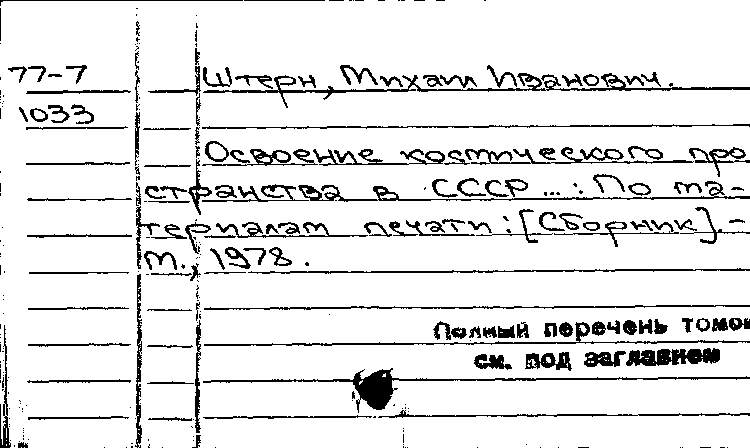 77-7 Штерн, Михаил Иванович.
1033
Освоение космического про
странства в СССР ...: По ма-
териалам печати: [Сборник]. -
М., 1978.
Полный перечень томов
см. под заглавием